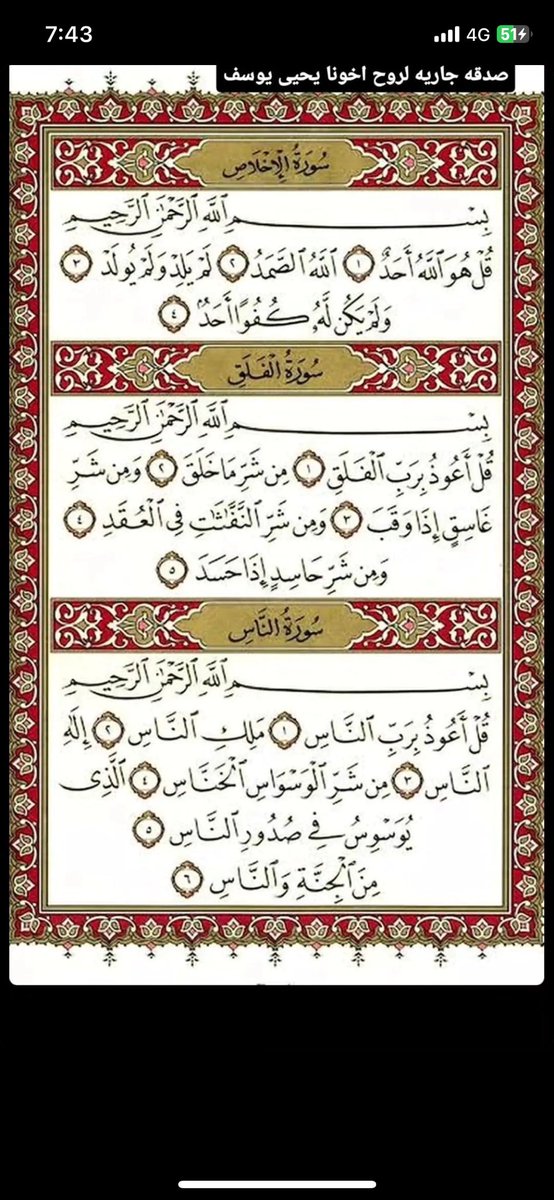 7:43
4G 51
صدقه جاريه لروح اخونا يحيى يوسف
سُورَةُ الإِخْلَاصِ
بِسْمِ ٱللَّهِ ٱلرَّحْمَٰنِ ٱلرَّحِيمِ
قُلْ هُوَ ٱللَّهُ أَحَدٌ ١ ٱللَّهُ ٱلصَّمَدُ ٢ لَمْ يَلِدْ وَلَمْ يُولَدْ ٣
وَلَمْ يَكُن لَّهُۥ كُفُوًا أَحَدٌۢ ٤
سُورَةُ الْفَلَقِ
بِسْمِ ٱللَّهِ ٱلرَّحْمَٰنِ ٱلرَّحِيمِ
قُلْ أَعُوذُ بِرَبِّ ٱلْفَلَقِ ١ مِن شَرِّ مَا خَلَقَ ٢ وَمِن شَرِّ
غَاسِقٍ إِذَا وَقَبَ ٣ وَمِن شَرِّ ٱلنَّفَّٰثَٰتِ فِى ٱلْعُقَدِ ٤
وَمِن شَرِّ حَاسِدٍ إِذَا حَسَدَ ٥
سُورَةُ النَّاسِ
بِسْمِ ٱللَّهِ ٱلرَّحْمَٰنِ ٱلرَّحِيمِ
قُلْ أَعُوذُ بِرَبِّ ٱلنَّاسِ ١ مَلِكِ ٱلنَّاسِ ٢ إِلَٰهِ
ٱلنَّاسِ ٣ مِن شَرِّ ٱلْوَسْوَاسِ ٱلْخَنَّاسِ ٤ ٱلَّذِى
يُوَسْوِسُ فِى صُدُورِ ٱلنَّاسِ ٥
مِنَ ٱلْجِنَّةِ وَٱلنَّاسِ ٦